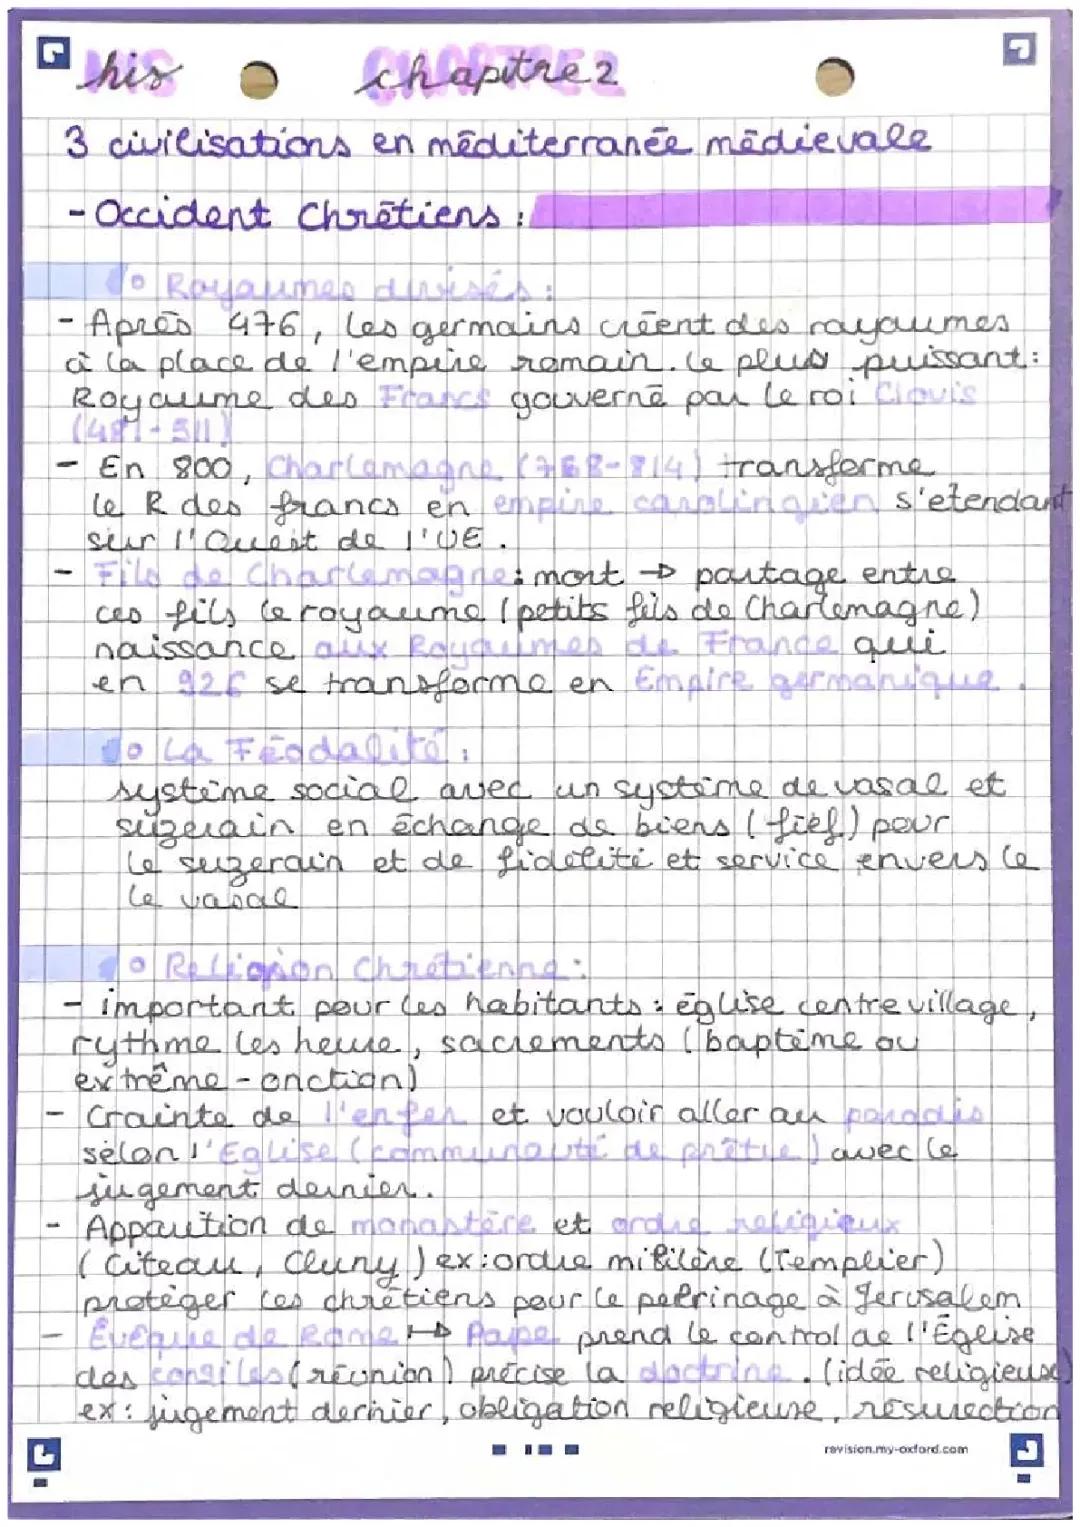 his chapitre 2
3 civilisations en méditerranée médievale
- Occident Chrétiens :
o Royaumes divisés :
- Après 476, les germains créent des royaumes
à la place de l'empire romain. le plus puissant :
Royaume des Francs gouverné par le roi Clovis
(481-511)
- En 800, Charlemagne (768-814) transforme
le R des francs en empire carolingien s'etendant
sur l'Ouest de l'UE.
- Fils de Charlemagne : mort → partage entre
ces fils le royaume (petits fils de Charlemagne)
naissance aux Royaumes de France qui
en 926 se transforme en Empire germanique.
o La Féodalité :
système social avec un système de vasal et
suzerain en échange de biens (fief) pour
le suzerain et de fidélité et service envers le
le vasal
o Religion Chrétienne :
- important pour les habitants : église centre village,
rythme les heure, sacrements (baptème ou
extrême-onction)
- Crainte de l'enfer et vouloir aller au paradis
selon l'Eglise (communauté de prêtre) avec le
jugement dernier.
- Apparition de monastère et ordre religieux
(Citeau, Cluny) ex : ordre militère (Templier)
protéger les chrétiens pour le pelrinage à Jerusalem
- Evêque de Rome → Pape prend le control de l'Église
des conciles (réunion) précise la doctrine. (idée religieuse)
ex : jugement dernier, obligation religieuse, résurection
revision.my-oxford.com